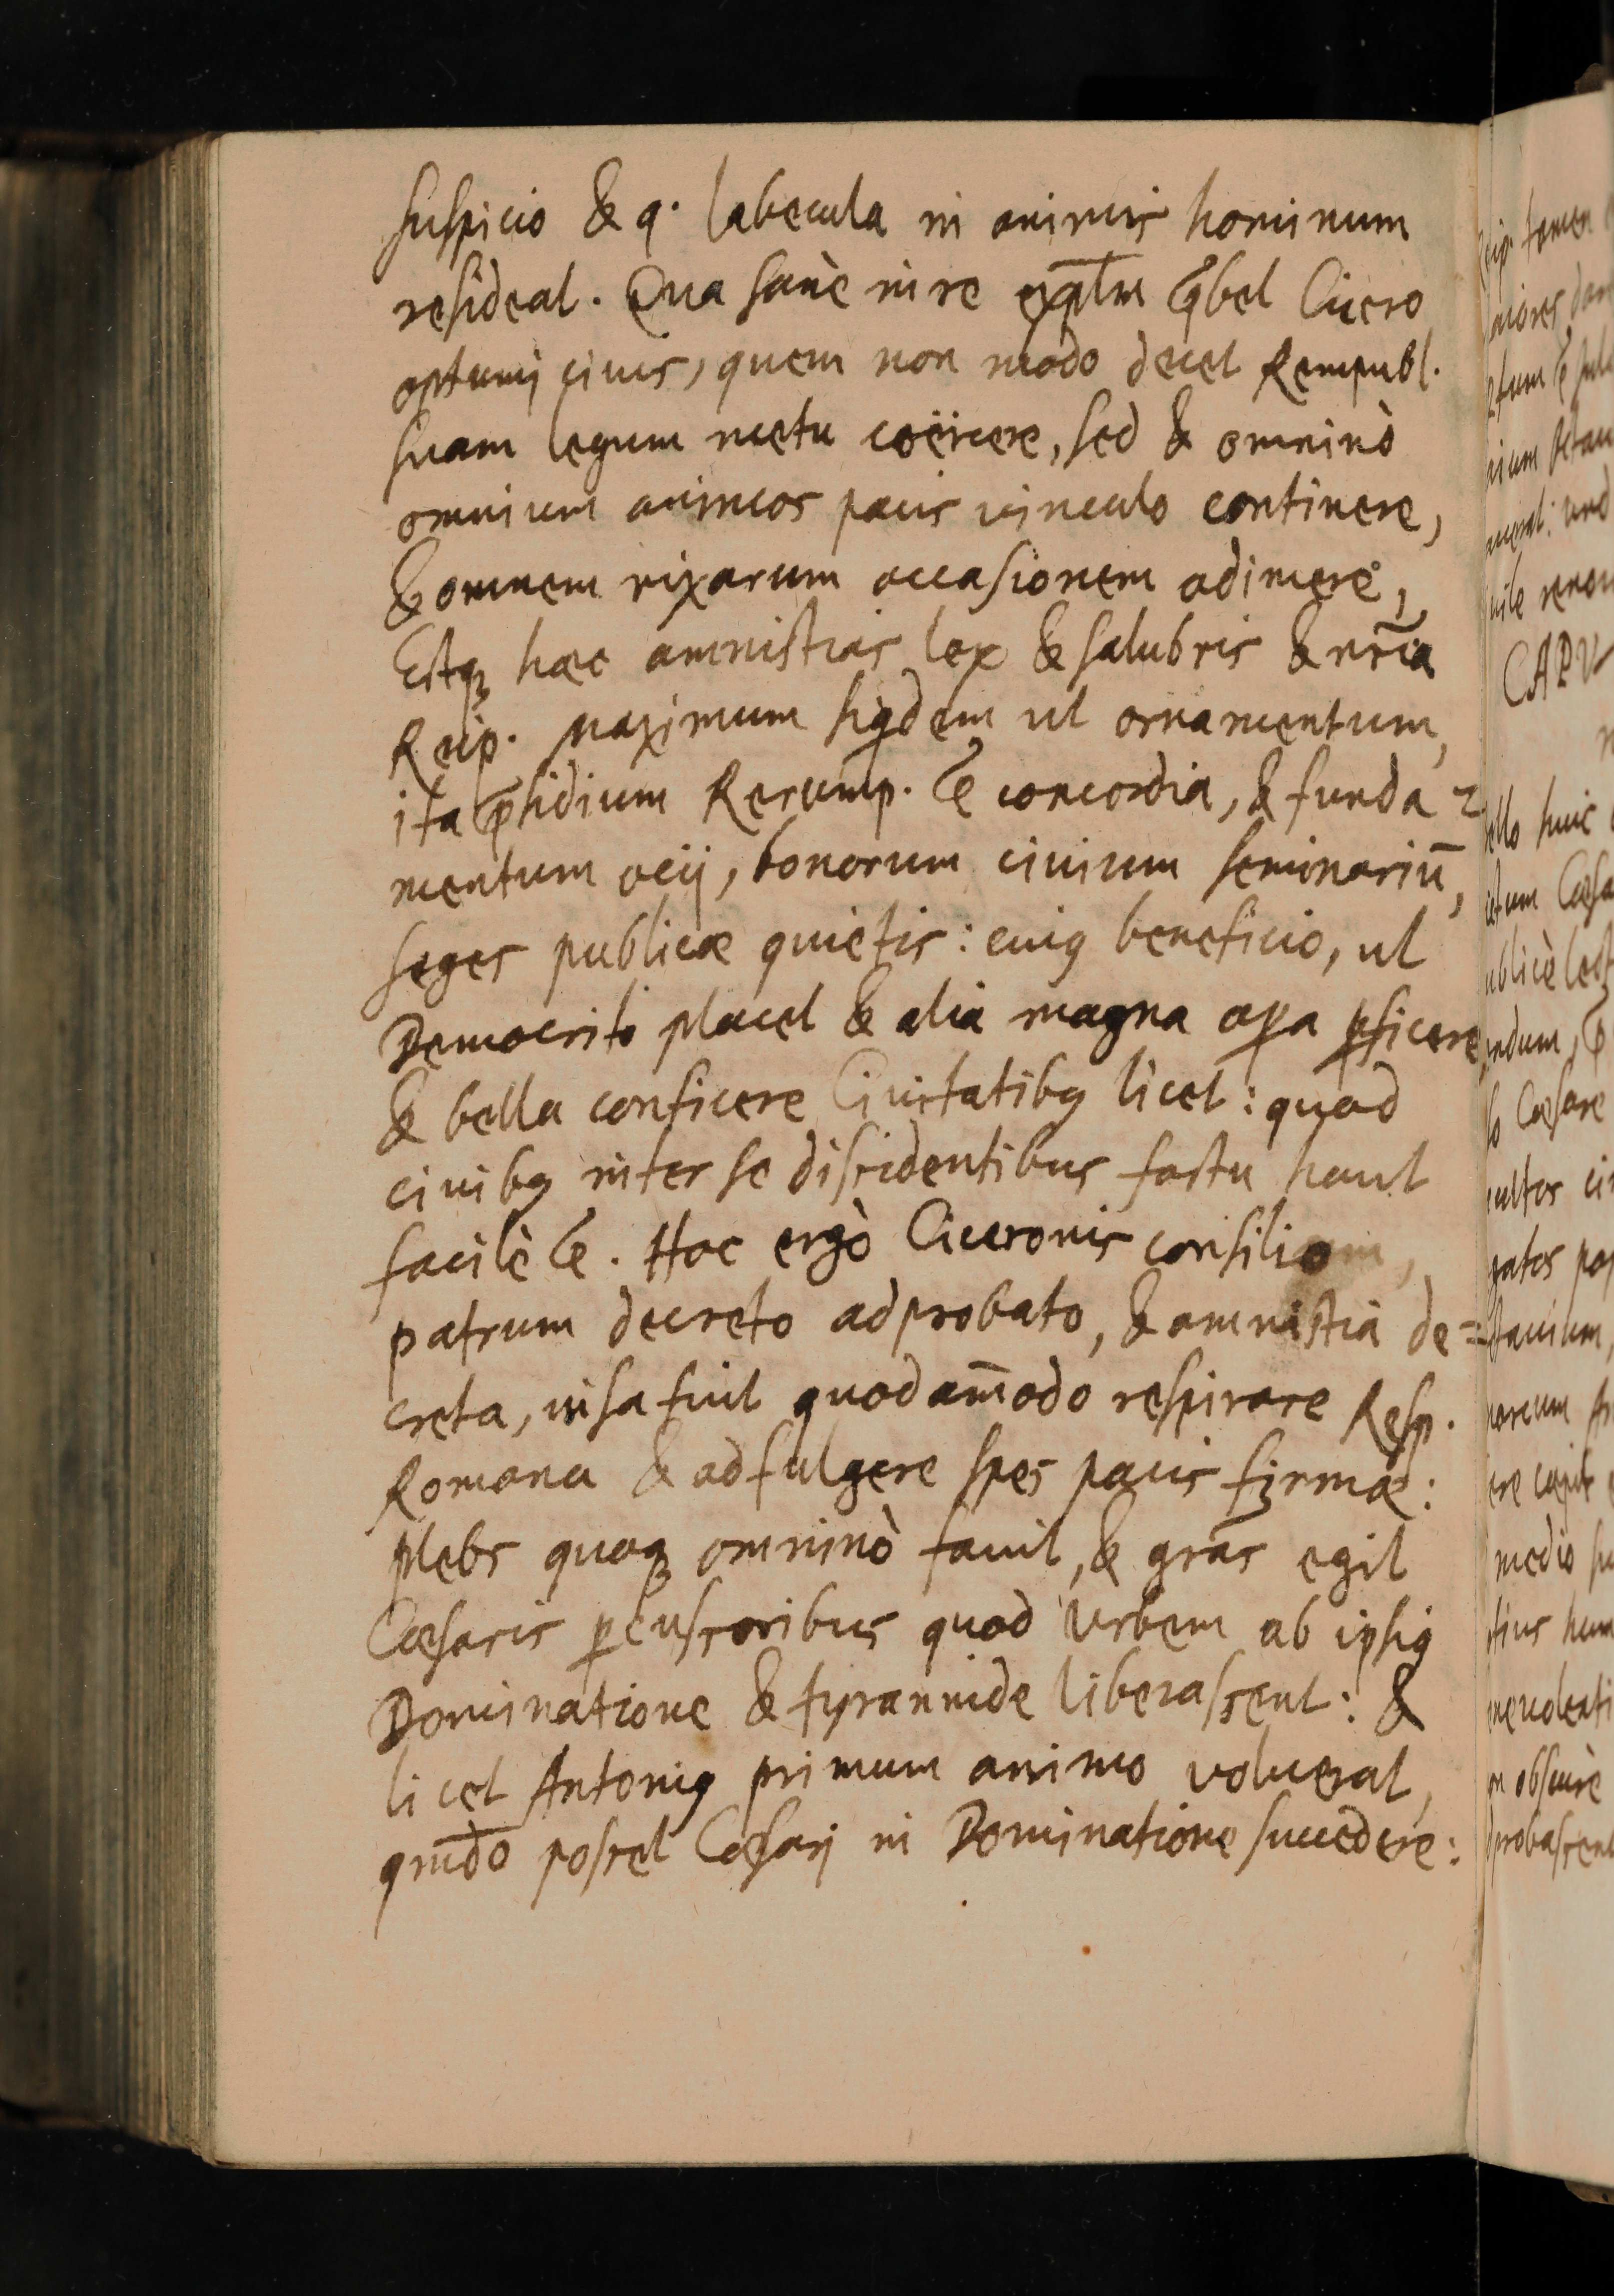 suspicio & q. labecula in animis hominum
resideat. Qua sanè in re exp̄lm p̄bet Cicero
optumj civis, quem non modo decet Rempubl.
suam legum metu coërcere, sed & omninò
omnium animos pacis vinculo continere,
& omnem rixarum occasionem adimere,
Estq; haec amnistias lex & salubris & nr̄ia
Reip. maximum siq̄dem ut ornamentum,
ita p̄sidium Rerump. ē concordia, & funda=
mentum ocij, bonorum civium seminariū,
seges publicae quietis: cuiq beneficio, ut
Democrito placet & alia magna opa pficere
& bella conficere Civitatibq licet: quod
civibq inter se dissidentibus factu haut
facilè ē. Hoc ergò Ciceronis consilio,
patrum decreto adprobato, & amnistia de=
creta, visa fuit quodam̄odo respirare Resp.
Romana & adfulgere spes pacis firmae:
plebs quoq; omninò favit, & grās egit
Caesaris pcussoribus quod Urbem ab ipsiq
Dominatione & tyrannide liberassent: &
licet Antoniq primum animo volverat,
qm̄do posset Caesarj in Dominatione succedere:
eip. tamen
CAPV
ello huic
lo Caesare
medio
obscurè
probassent